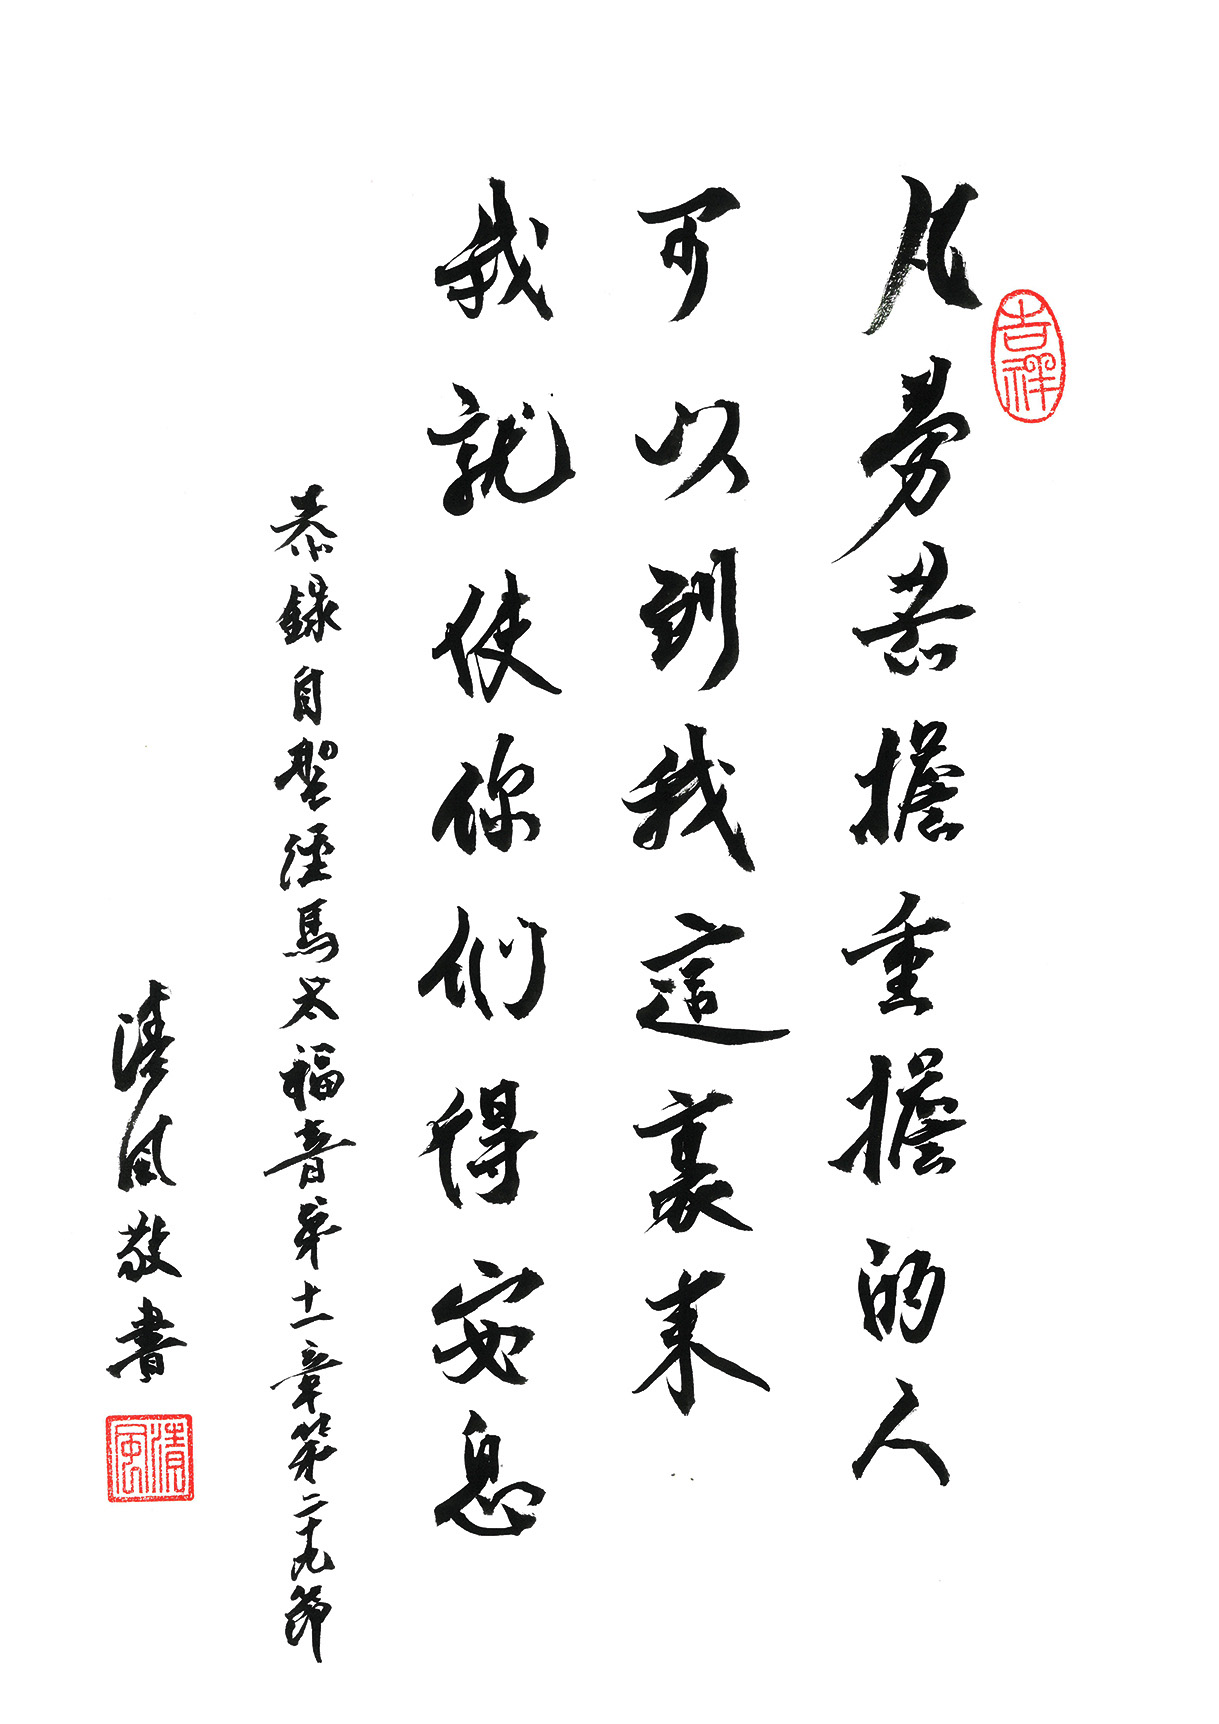 吉祥
凡勞苦擔重擔的人
可以到我這裏來
我就使你們得安息
恭錄自聖經馬太福音第十一章第二十九節
清風敬書
清風